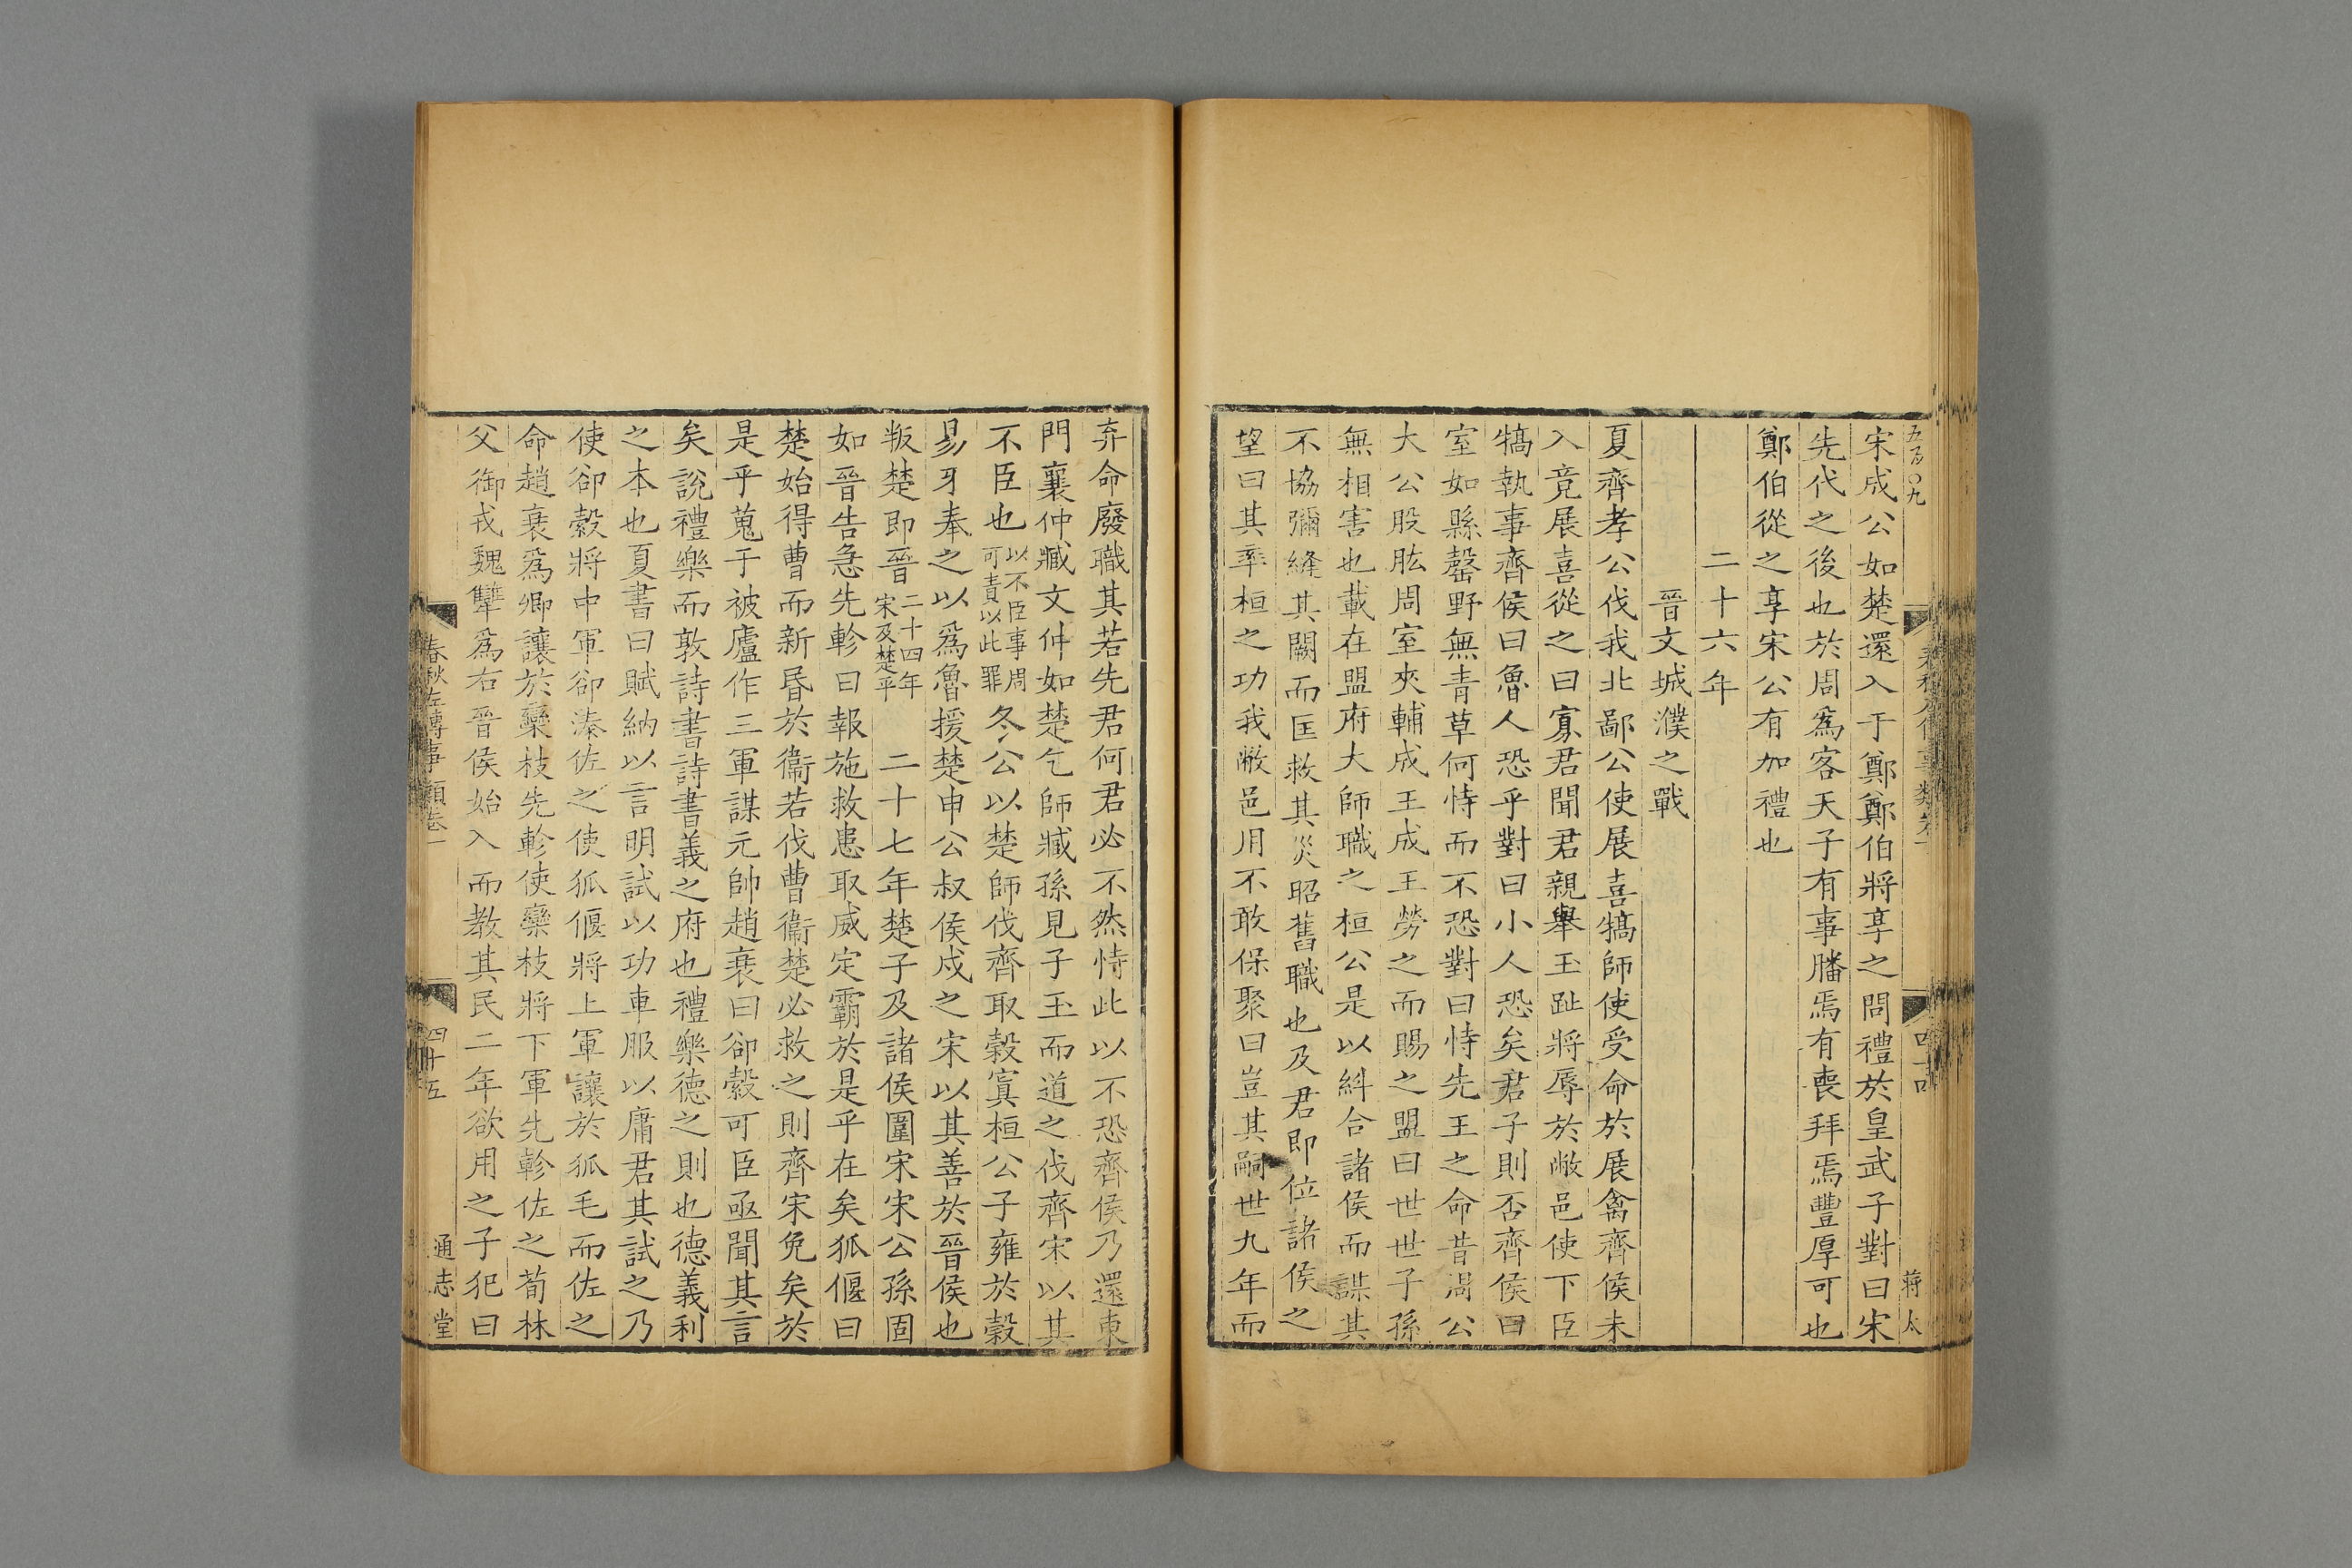 宋成公如楚還入于鄭鄭伯將享之問禮於皇武子對曰宋
先代之後也於周爲客天子有事膰焉有喪拜焉豐厚可也
鄭伯從之享宋公有加禮也
二十六年
晉文城濮之戰
夏齊孝公伐我北鄙公使展喜犒師使受命於展禽齊侯未
入竟展喜從之曰寡君聞君親舉玉趾將辱於敝邑使下臣
犒執事齊侯曰魯人恐乎對曰小人恐矣君子則否齊侯曰
室如縣罄野無青草何恃而不恐對曰恃先王之命昔周公
大公股肱周室夾輔成王成王勞之而賜之盟曰世世子孫
無相害也載在盟府大師職之桓公是以糾合諸侯而謀其
不協彌縫其闕而匡救其災昭舊職也及君即位諸侯之
望曰其率桓之功我敝邑用不敢保聚曰豈其嗣世九年而
蔣太
弃命廢職其若先君何君必不然恃此以不恐齊侯乃還東
門襄仲臧文仲如楚乞師臧孫見子玉而道之伐齊宋以其
不臣也以不臣事周可責以此罪冬公以楚師伐齊取穀寘桓公子雍於穀
易牙奉之以爲魯援楚申公叔侯戍之宋以其善於晉侯也
叛楚即晉二十四年宋及楚平二十七年楚子及諸侯圍宋宋公孫固
如晉告急先軫曰報施救患取威定霸於是乎在矣狐偃曰
楚始得曹而新昏於衞若伐曹衞楚必救之則齊宋免矣於
是乎蒐于被廬作三軍謀元帥趙衰曰郤縠可臣亟聞其言
矣說禮樂而敦詩書詩書義之府也禮樂德之則也德義利
之本也夏書曰賦納以言明試以功車服以庸君其試之乃
使郤縠將中軍郤溱佐之使狐偃將上軍讓於狐毛而佐之
命趙衰爲卿讓於欒枝先軫使欒枝將下軍先軫佐之荀林
父御戎魏犨爲右晉侯始入而教其民二年欲用之子犯曰
春秋左傳事類卷一
四十五
通志堂